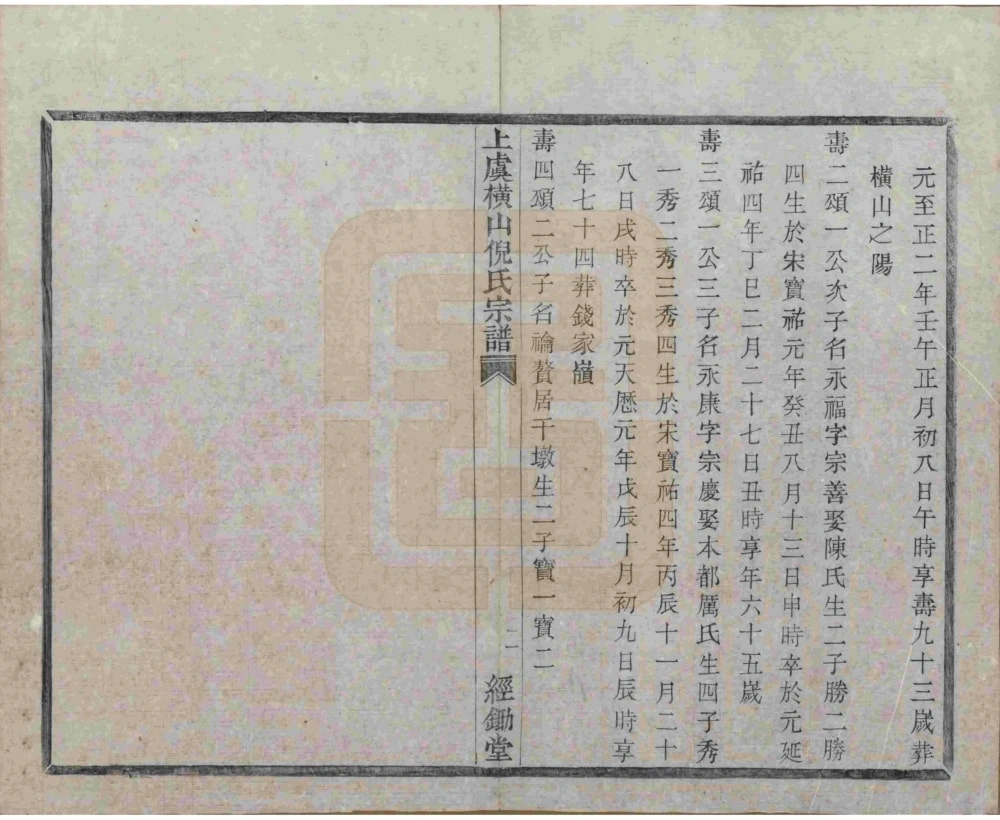 元至正二年壬午正月初八日午時享壽九十三歲葬
橫山之陽
壽二頌一公次子名永福字宗善娶陳氏生二子勝二勝
四生於宋寶祐元年癸丑八月十三日申時卒於元延
祐四年丁巳二月二十七日丑時享年六十五歲
壽三頌一公三子名永康字宗慶娶本都厲氏生四子秀
一秀二秀三秀四生於宋寶祐四年丙辰十一月二十
八日戌時卒於元天厯元年戊辰十月初九日辰時享
年七十四葬錢家嶺
壽四頌二公子名綸贅居干墩生二子寶一寶二
上虞橫山倪氏宗譜
二
經鋤堂